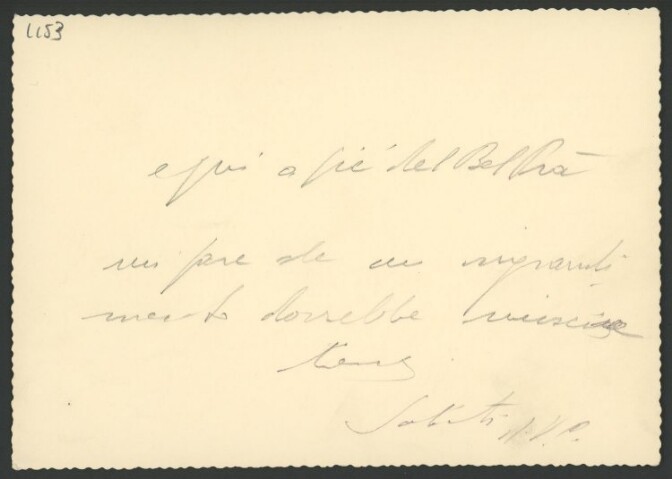 1153
e qui a pié del Bel Prà
mi pare che un ingrandi
mento dovrebbe riuscire
bene.
Saluti